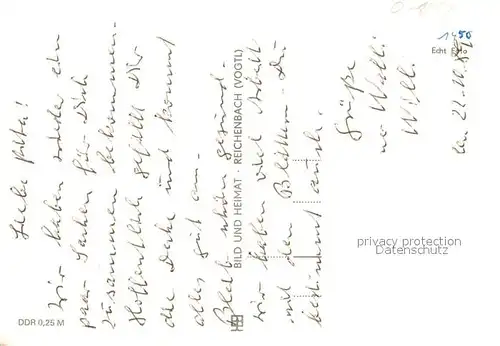 Liebe Rita!
Wir haben wieder ein
paar Sachen für Dich
zusammen bekommen.
Hoffentlich gefällt Dir
die Decke und kommt
alles gut an.
Bleib schön gesund.
Wir haben viel Arbeit
mit den Blättern. Du
bestimmt auch.
Grüße
Walli
Willi
BILD UND HEIMAT · REICHENBACH (VOGTL)
DDR 0,25 M
1450
Echt Foto
privacy protection
Datenschutz